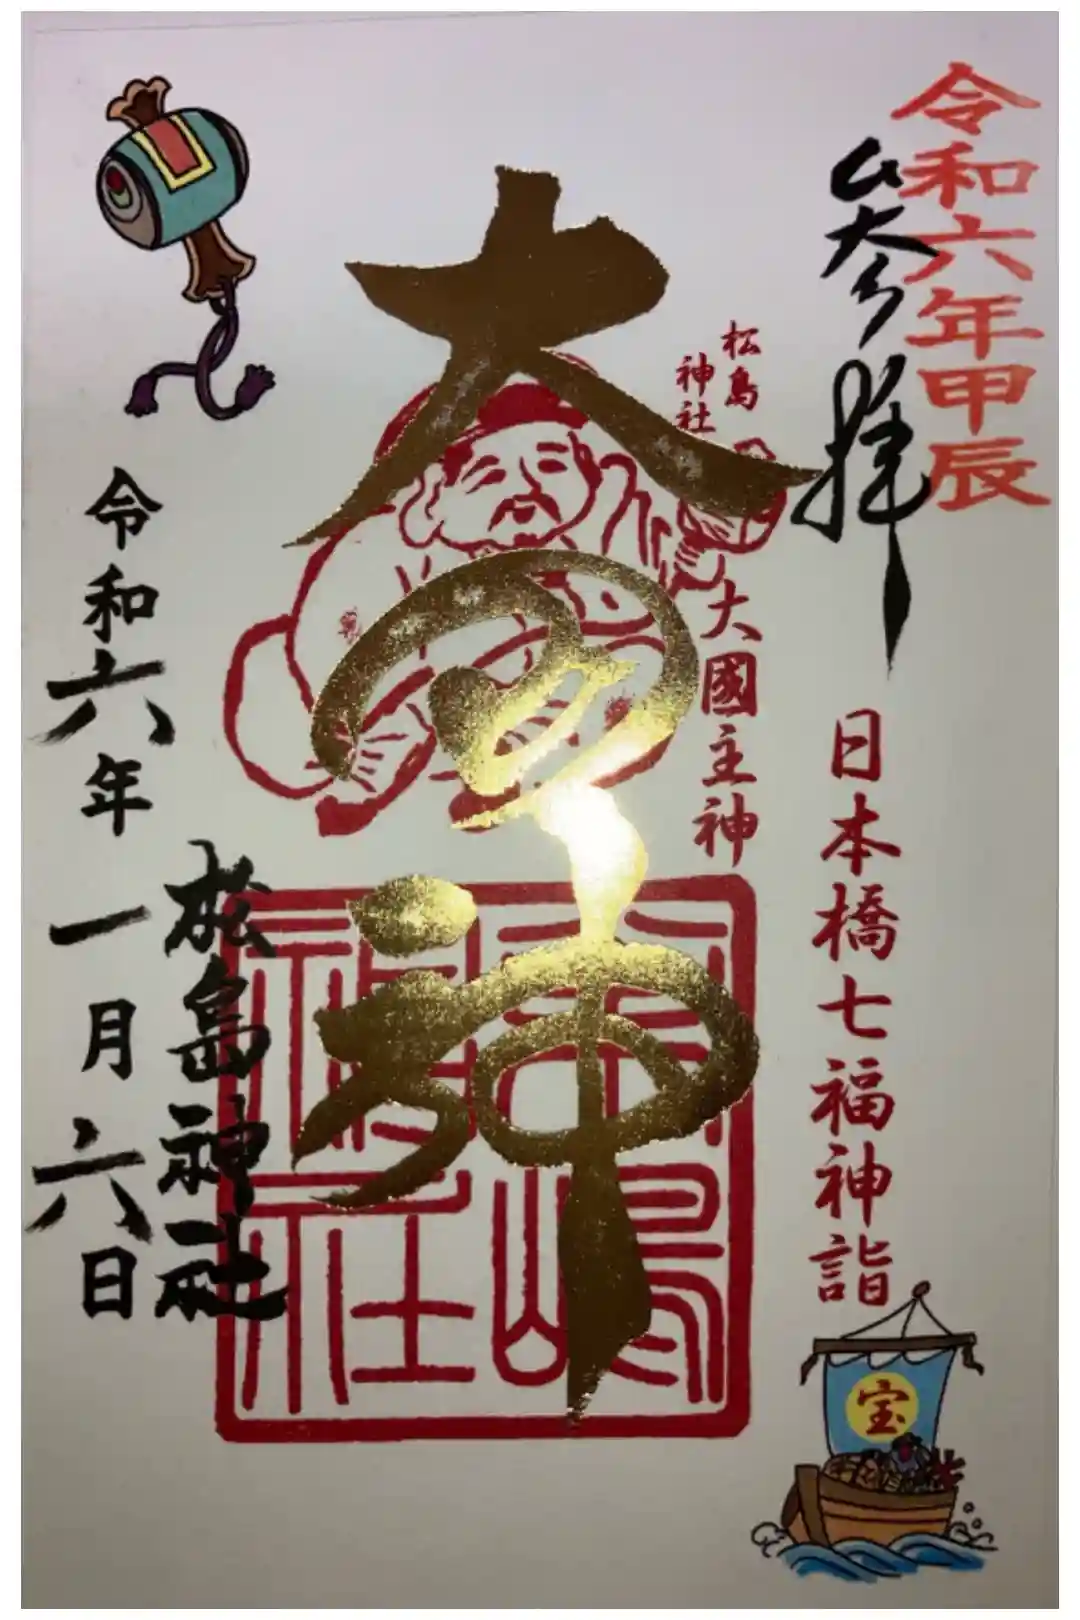 令和六年甲辰
参拝
日本橋七福神詣
宝
松島
神社
大國主神
大黒神
松嶋神社
松島神社
令和六年一月六日